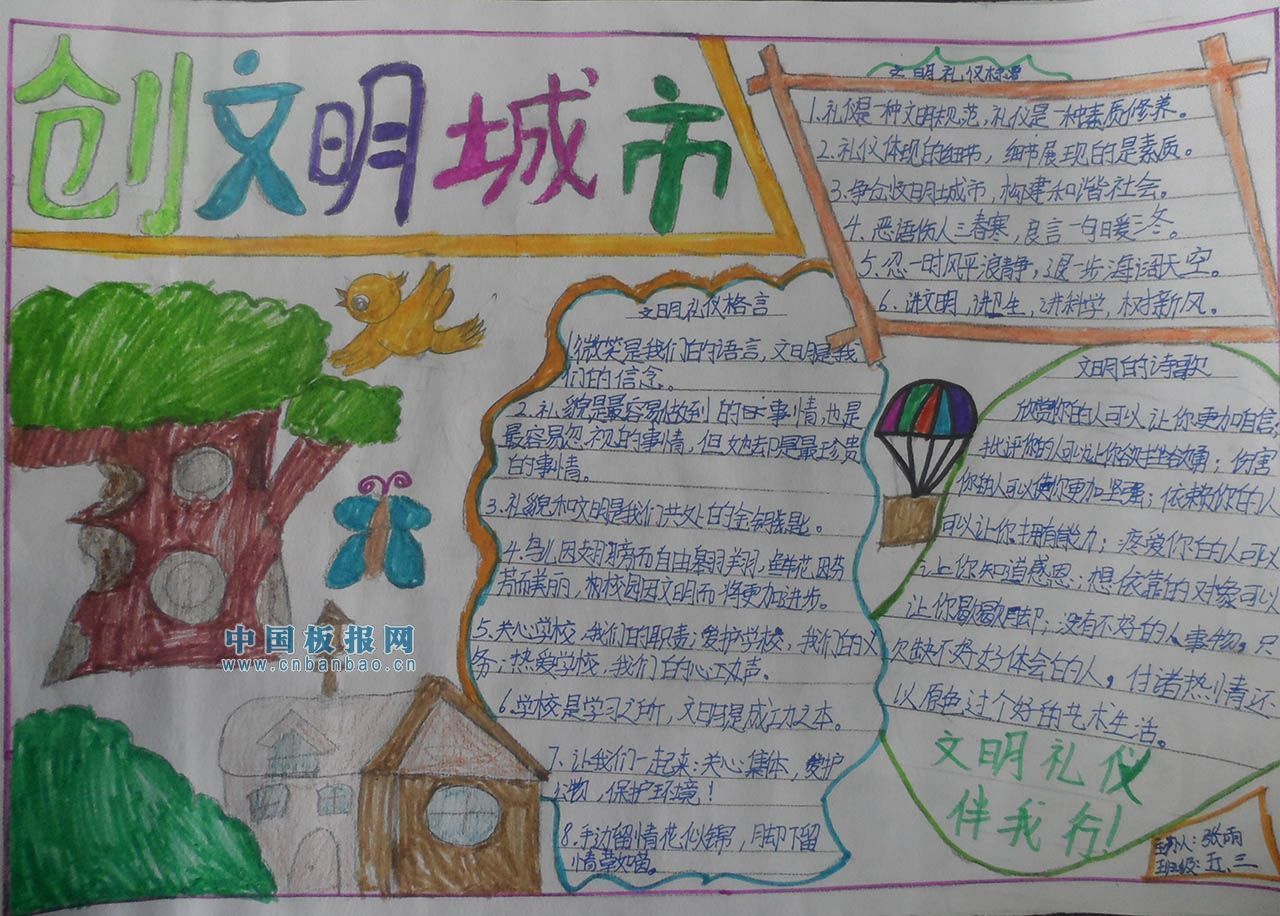 创文明城市
文明礼仪标语
1.礼仪是一种文明规范,礼仪是一种素质修养。
2.礼仪体现的细节,细节展现的是素质。
3.争 文明城市,构建和谐社会。
4.恶语伤人三春寒,良言一句暖三冬。
5.忍一时风平浪静,退一步海阔天空。
6.讲文明,讲卫生,讲科学,树新风。
文明礼仪格言
1.微笑是我们的语言,文明是我
们的信念。
2.礼貌是最容易做到的事情,也是
最容易忽视的事情,但她却是最珍贵
的事情。
3.礼貌和文明是我们共处的金钥匙。
4.鸟儿因翅膀而自由翱翔,鲜花因芬
芳而美丽,校园因文明而将更加进步。
5.关心学校,我们的职责;爱护学校,我们的义
务;热爱学校,我们的心声。
6.学校是学习之所,文明是成功之本。
7.让我们一起来:关心集体,爱护
公物,保护环境!
8.手边留情花似锦,脚下留
情草如茵。
文明的诗歌
欣赏你的人可以让你更加自信;
批评你的人可以让你 ;伤害
你的人可以使你更加坚强;依赖你的人
可以让你拥有能力;疼爱你的人可以
让你知道感恩;想依靠的对象可以
让你歇歇脚;没有不好的人事物。只
欠缺不好好体会的人。付诸热情还
以原色过个好的艺术生活。
文明礼仪
伴我行!
主办人:张雨
班级:五、三
中国板报网
www.cnbanbao.cn